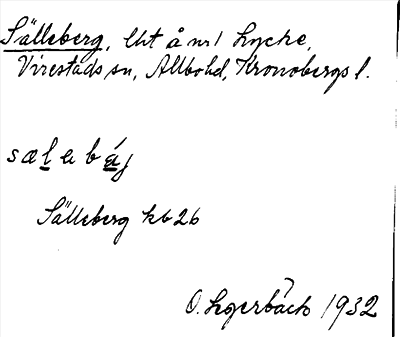 Sälleberg, lht å nr 1 Lycke,
Virestads sn, Allbo hd, Kronobergs l.
sælebáj
Sälleberg kb 26
O. Lagerbäck 1932